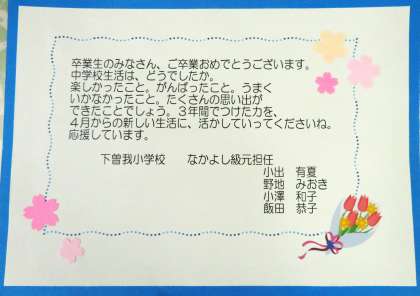 卒業生のみなさん、ご卒業おめでとうございます。
中学校生活は、どうでしたか。
楽しかったこと。がんばったこと。うまく
いかなかったこと。たくさんの思い出が
できたことでしょう。3年間でつけた力を、
4月からの新しい生活に、活かしていってくださいね。
応援しています。
下曽我小学校　なかよし級元担任
小出　有夏
野地　みおき
小澤　和子
飯田　恭子